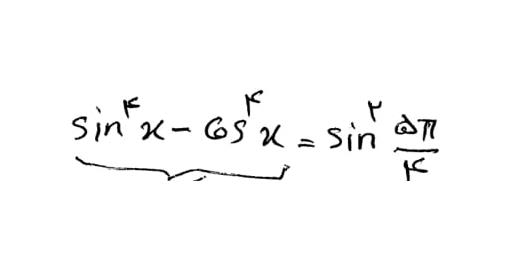 sin^۴ x - cos^۴ x = sin^۲ ۵π/۴